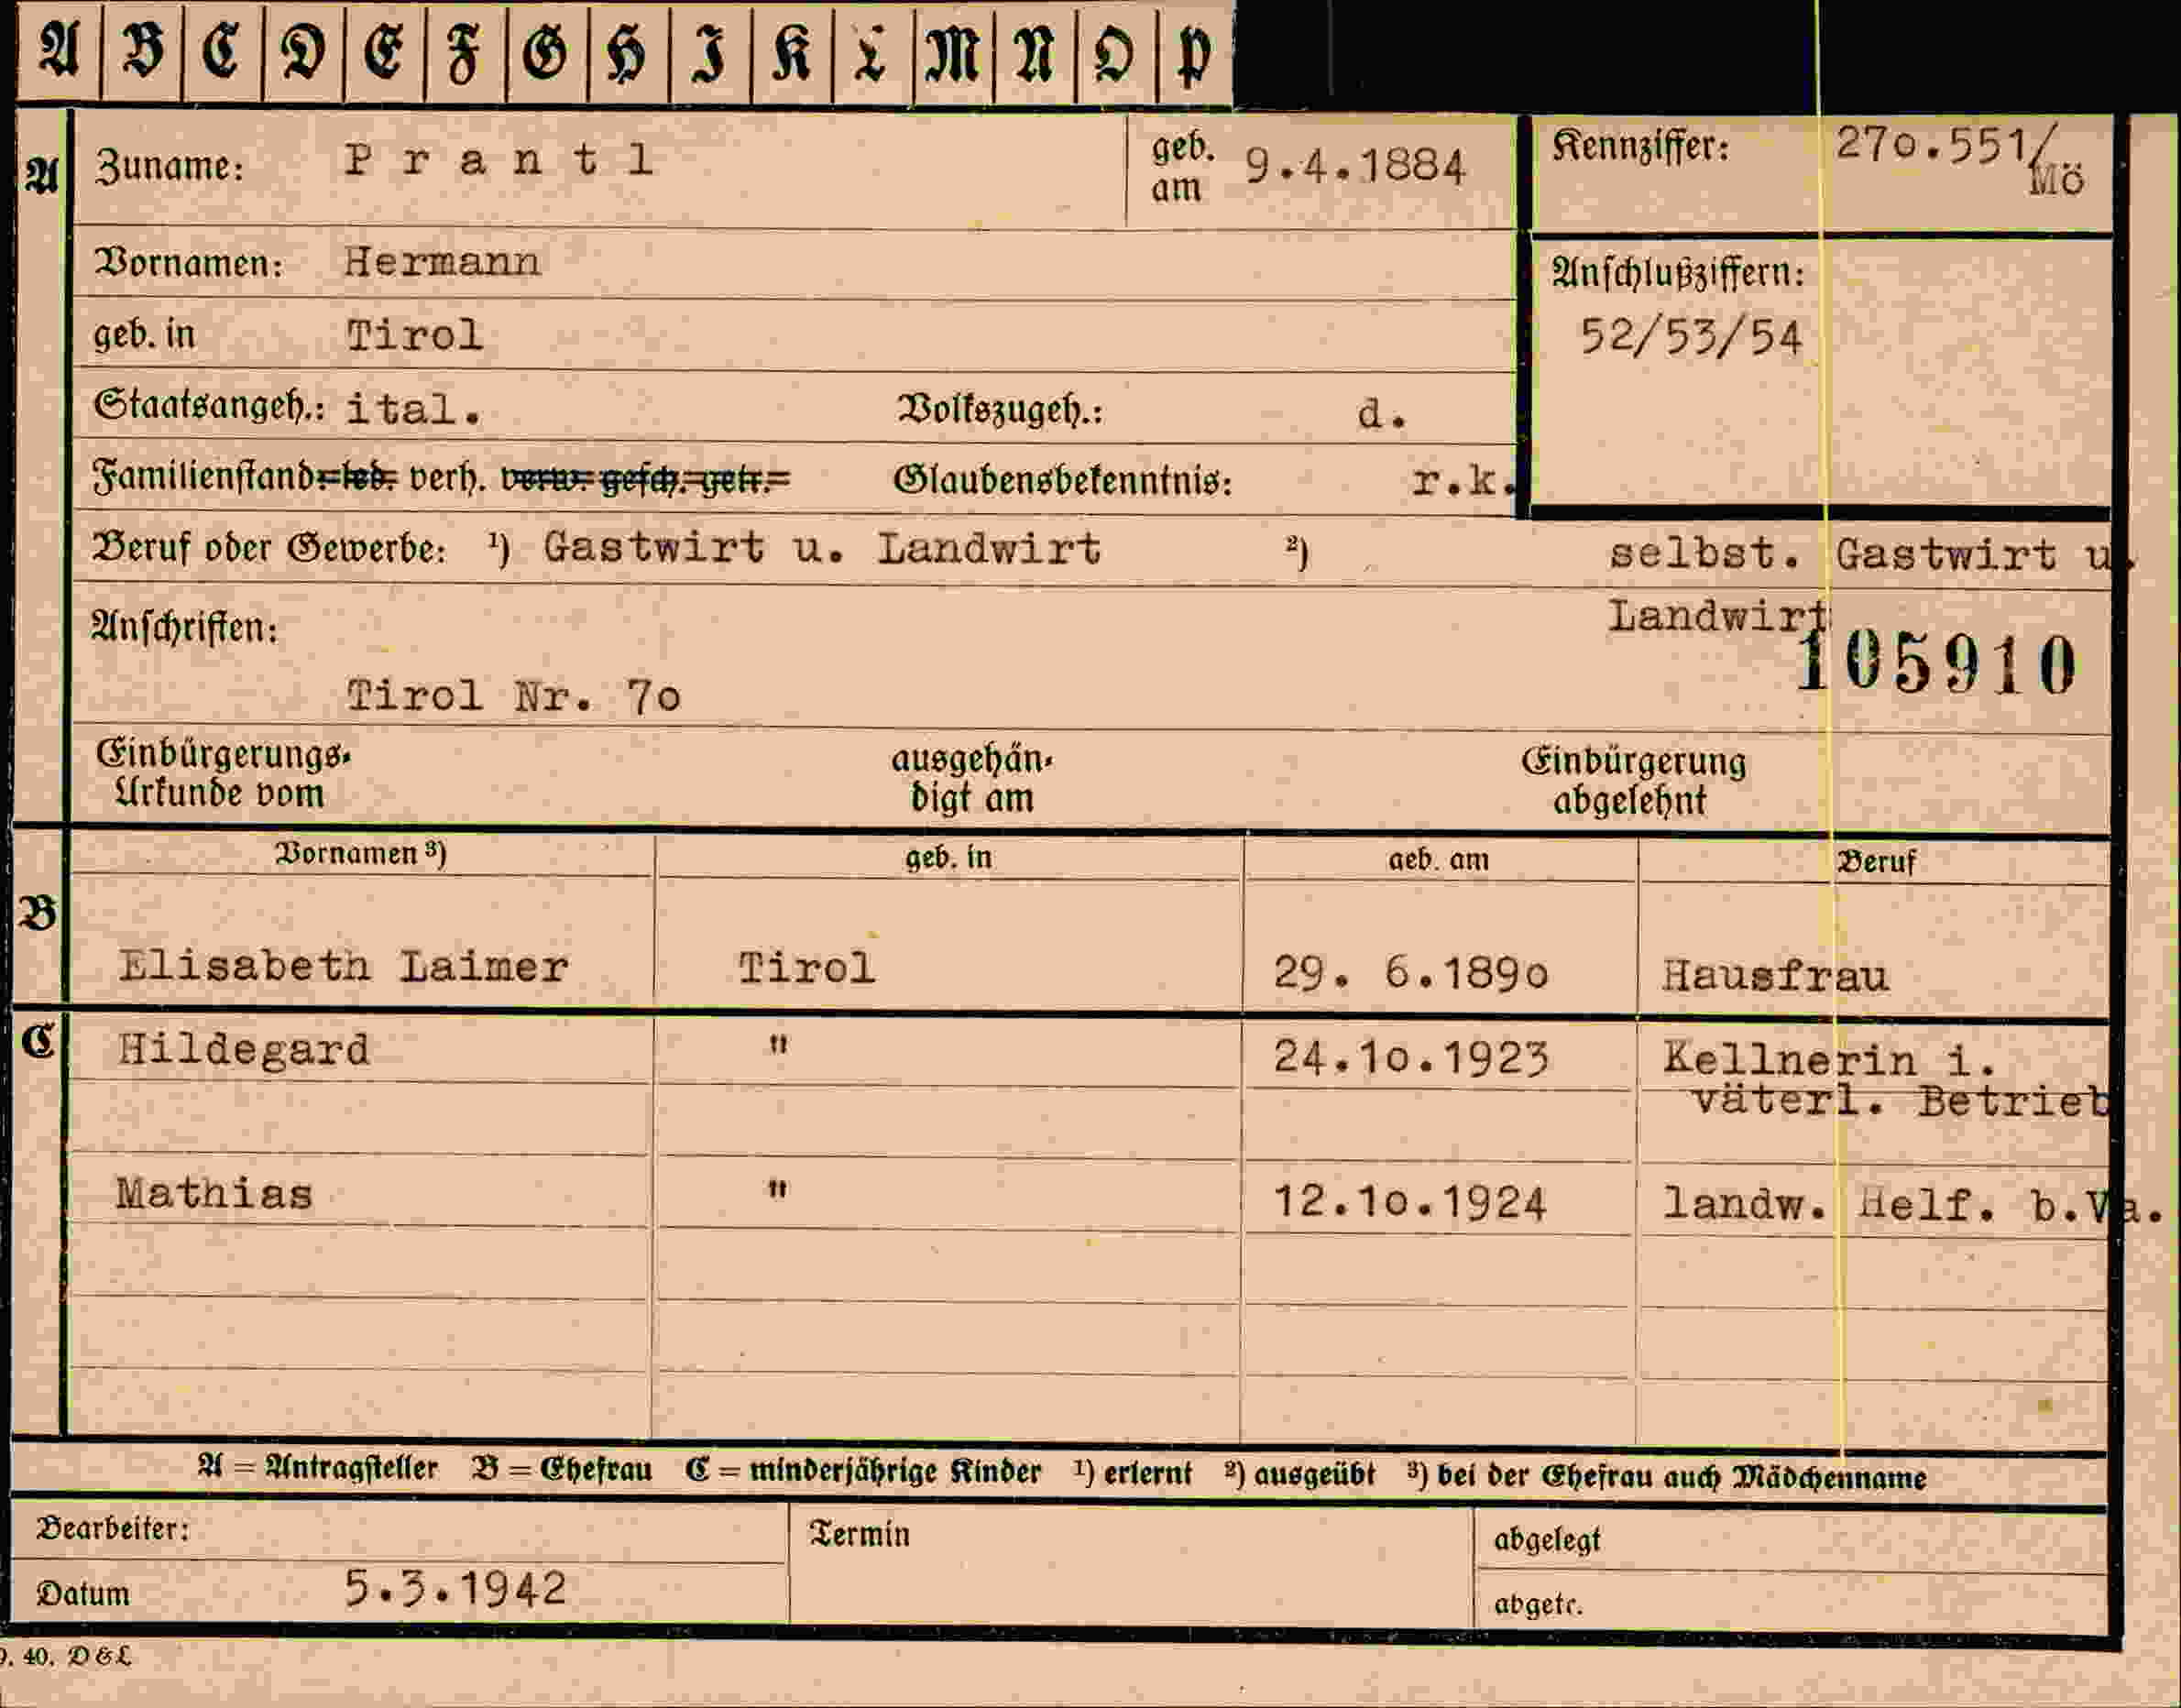 A B C D E F G H I K L M N O P
A Zuname: Prantl geb. am 9.4.1884 Kennziffer: 270.551/Mö
Vornamen: Hermann
Anschlußziffern:
geb. in Tirol 52/53/54
Staatsangeh.: ital. Volkszugeh.: d.
Familienstand: led. verh. verw. gesch. getr. Glaubensbekenntnis: r.k.
Beruf oder Gewerbe: ¹) Gastwirt u. Landwirt ²) selbst. Gastwirt u.
Landwirt
Anschriften: 105910
Tirol Nr. 70
Einbürgerungs- ausgehän- Einbürgerung
Urkunde vom digt am abgelehnt
Vornamen ³) geb. in geb. am Beruf
B
Elisabeth Laimer Tirol 29. 6.1890 Hausfrau
C Hildegard " 24.10.1923 Kellnerin i.
väterl. Betrieb
Mathias " 12.10.1924 landw. Helf. b.Va.
A = Antragsteller B = Ehefrau C = minderjährige Kinder ¹) erlernt ²) ausgeübt ³) bei der Ehefrau auch Mädchenname
Bearbeiter: Termin abgelegt
Datum 5.3.1942 abgetr.
40. D&L